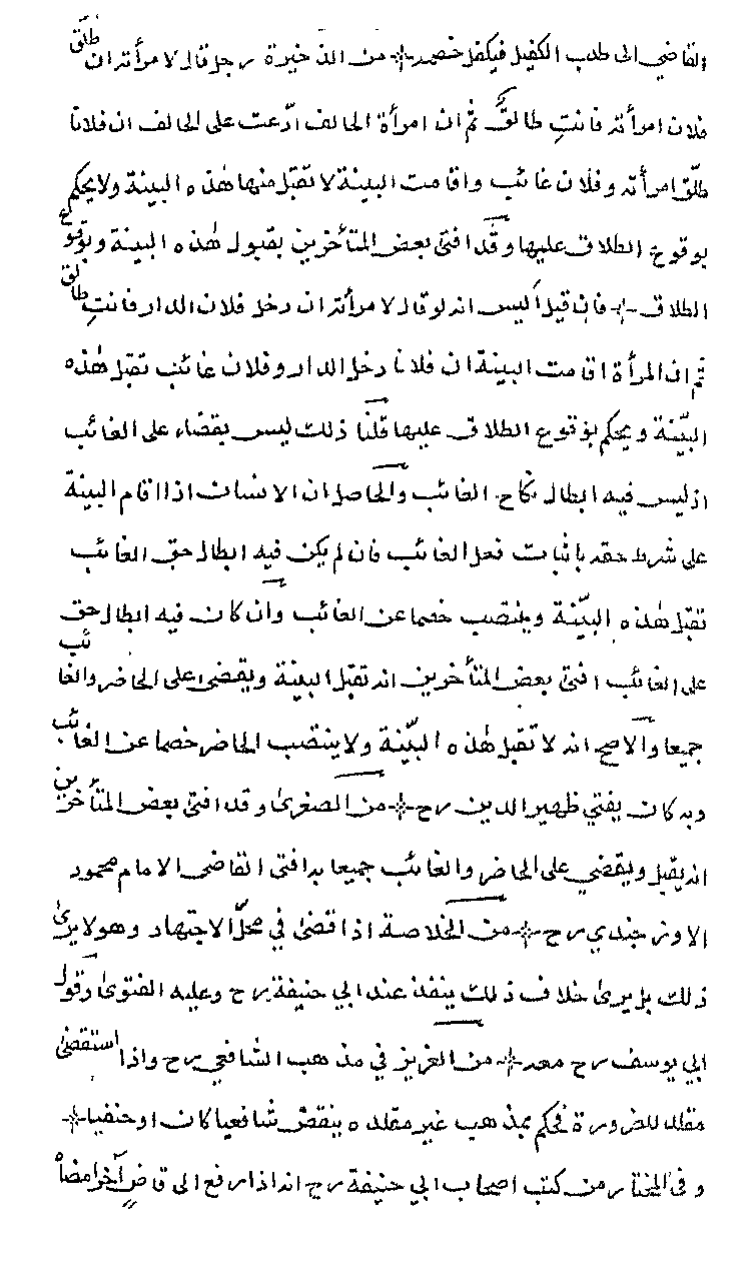 القاضي الى طلب الكفيل فيكفل خصمه ※ من الذخيرة رجل قال لامرأته ان طلّق
فلان امرأته فانتِ طالقٌ ثم ان امرأة الحالف ادّعت على الحالف ان فلانا
طلّق امرأته وفلان غائب واقامت البينة لا تقبل منها هٰذه البينة ولا يحكم
بوقوع الطلاق عليها وقد افتى بعض المتأخرين بقبول هٰذه البينة وبوقوع
الطلاق ※ فان قيل أليس انه لو قال لامرأته ان دخل فلان الدار فانتِ طالق
ثم ان المرأة اقامت البينة ان فلانا دخل الدار وفلان غائب تقبل هٰذه
البيّنة ويحكم بوقوع الطلاق عليها قلنا ذلك ليس بقضاء على الغائب
اذ ليس فيه ابطال نكاح الغائب والحاصل ان الانسان اذا اقام البينة
على شرط حقه باثبات فعل الغائب فان لم يكن فيه ابطال حق الغائب
تقبل هٰذه البيّنة وينتصب خصما عن الغائب وان كان فيه ابطال حق
على الغائب افتى بعض المتأخرين انه تقبل البينة ويقضى على الحاضر والغائب
جميعا والاصح انه لا تقبل هٰذه البيّنة ولا ينتصب الحاضر خصما عن الغائب
وبه كان يفتي ظهير الدين رح ※ من الصغرىٰ وقد افتى بعض المتأخرين
انه يقبل ويقضي على الحاضر والغائب جميعا به افتى القاضى الامام محمود
الاوزجندي رح ※ من الخلاصة اذا قضىٰ في محلّ الاجتهاد وهو لا يرىٰ
ذلك بل يرىٰ خلاف ذلك ينفذ عند ابي حنيفة رح وعليه الفتوىٰ وقول
ابي يوسف رح معه ※ من العزيز في مذهب الشافعي رح واذا استقضىٰ
مقلد للضرورة فحكم بمذهب غير مقلده ينقض شافعيا كان او حنفيا ※
وفى المختار من كتب اصحاب ابي حنيفة رح انه اذا رفع الى قاضٍ آخر امضاه